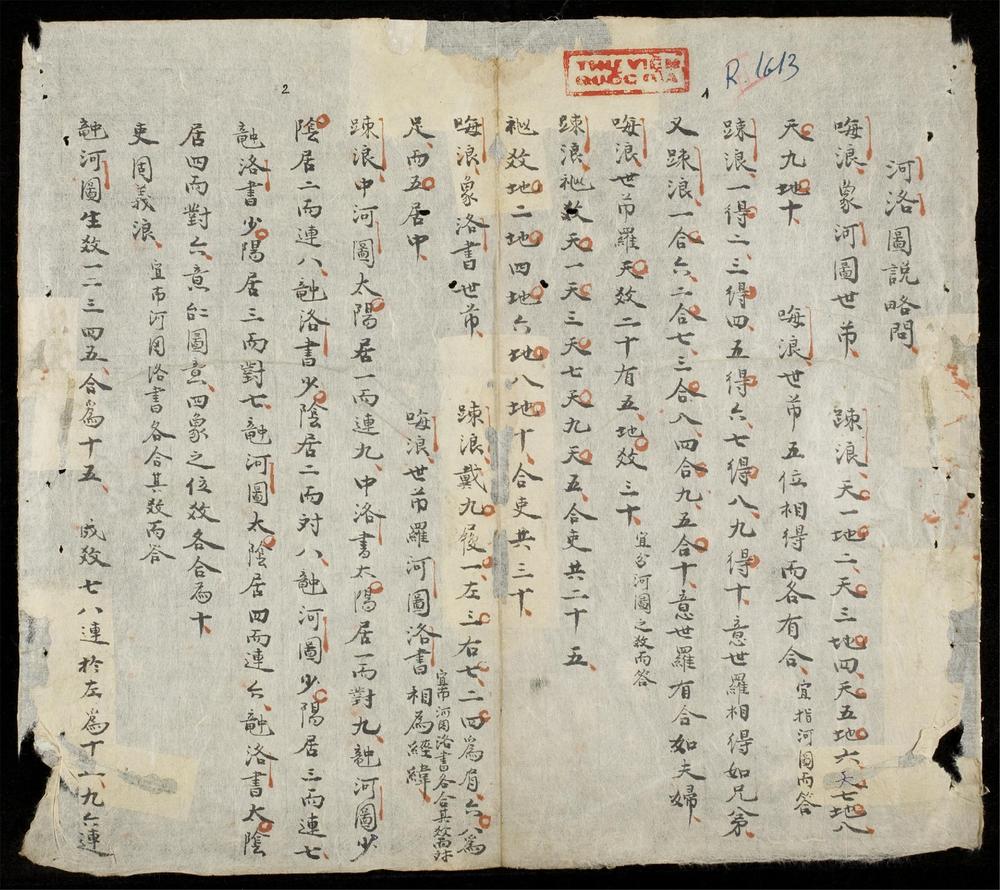 THƯ VIỆN
QUỐC GIA
R. 1613
1
2
河洛圖說略問
嗨浪、象河圖世芇、 踈浪、天一地二、天三地四、天五地六、天七地八
天九地十、 嗨浪世芇五位相得而各有合、宜指河圖而答
踈浪、一得二、三得四、五得六、七得八、九得十、意世羅相得如兄弟、
又踈浪、一合六、二合七、三合八、四合九、五合十、意世羅有合如夫婦、
嗨浪世芇羅天数二十有五、地数三十、宜分河圖之数而答
踈浪、𥘶数天一天三天七天九天五、合吏共二十五、
𥘶数地二地四地六地八地十、合吏共三十、
嗨浪、象洛書世芇、 踈浪、戴九履一、左三右七、二四爲肩、六八爲
足、而五居中、 嗨浪、世芇羅河圖洛書相爲經緯、宜芇河图洛書各合其数而対
踈浪、中河圖太陽居一而連九、中洛書太陽居一而對九、𥪝河圖少
陰居二而連八、𥪝洛書少陰居二而対八、𥪝河圖少陽居三而連七
𥪝洛書少陽居三而對七、𥪝河圖太陰居四而連六、𥪝洛書太陰
居四而對六、意圖意、四象之位数各合爲十、
吏固義浪、 宜芇河图洛書各合其数而答
𥪝河圖生数一二三四五、合爲十五、 成数七八連於左、爲十、九六連